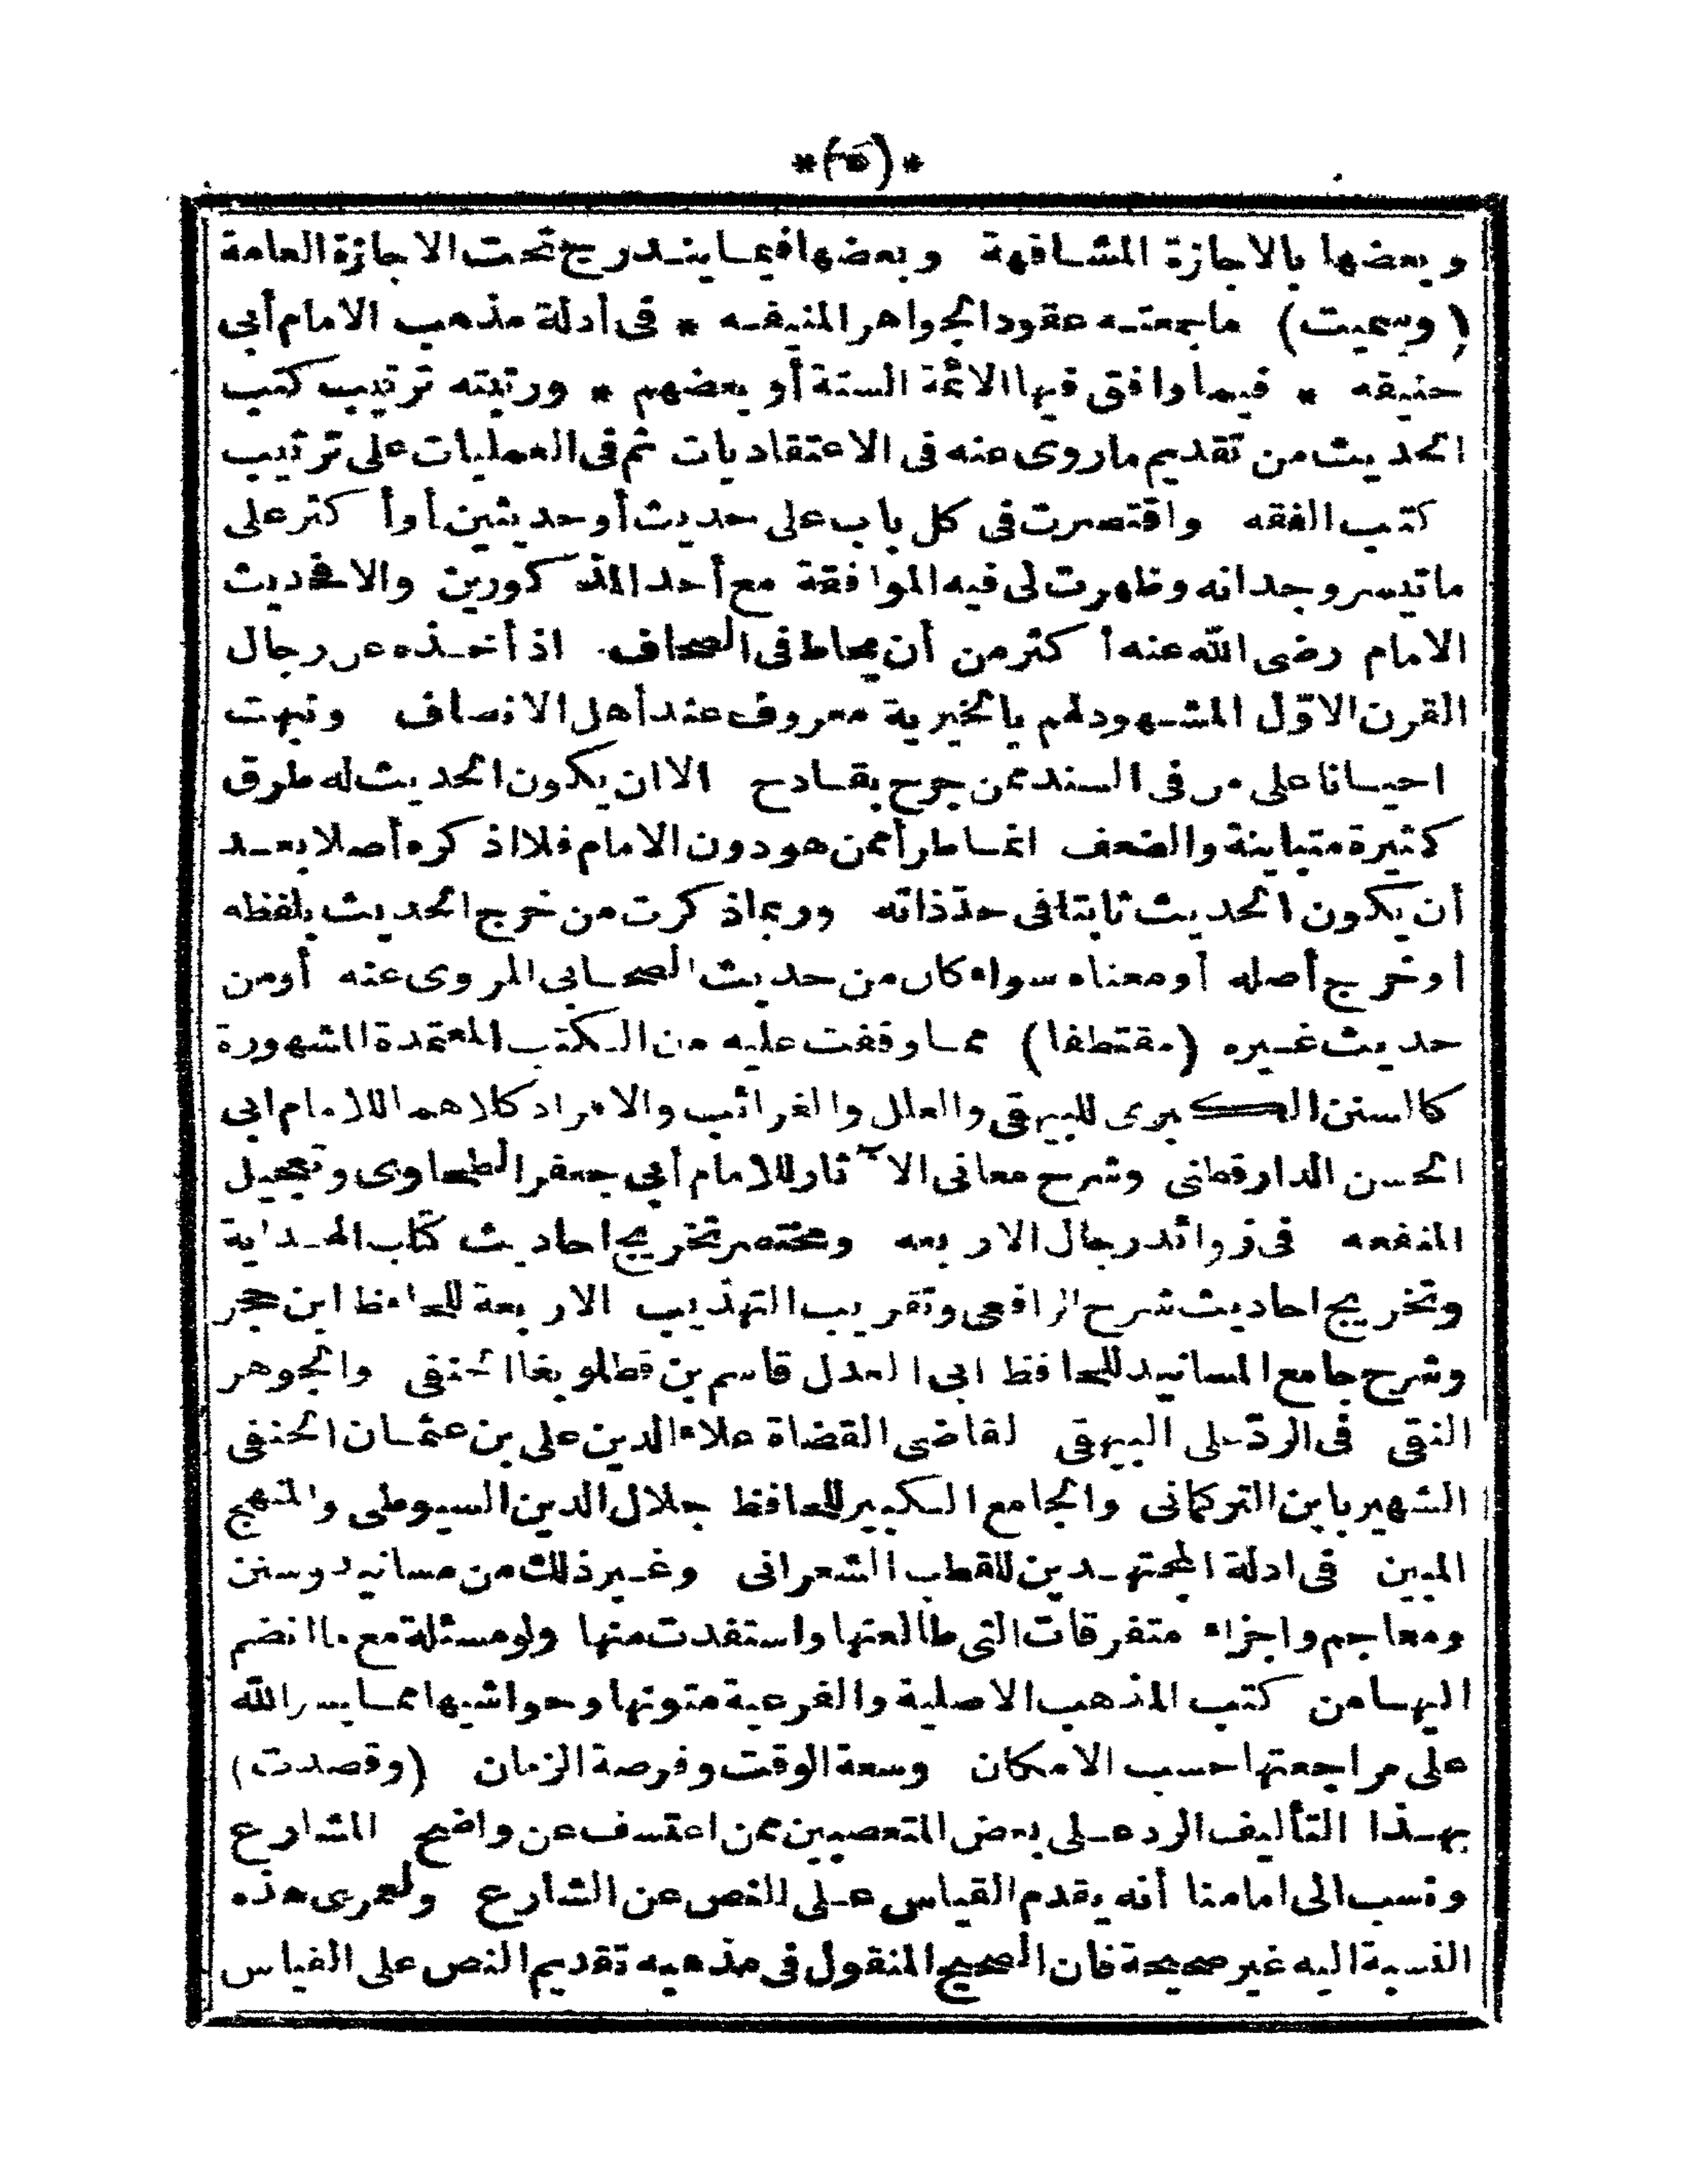 *(٥)*
وبعضها بالاجازة المشافهة وبعضها فيما يندرج تحت الاجازة العامة
(وسميت) ما جمعته عقود الجواهر المنيفه * فى أدلة مذهب الامام أبى
حنيفه * فيما وافق فيها الائمة الستة أو بعضهم * ورتبته ترتيب كتب
الحديث من تقديم ما روى عنه فى الاعتقاديات ثم فى العمليات على ترتيب
كتب الفقه واقتصرت فى كل باب على حديث أو حديثين أو أكثر على
ما تيسر وجدانه وظهرت لى فيه الموافقة مع أحد المذكورين والا فحديث
الامام رضى الله عنه أكثر من أن يحاط فى الصحاف اذ أخذه عن رجال
القرن الاوّل المشهود لهم بالخيرية معروف عند أهل الانصاف ونبهت
احيانا على من فى السند ممن جرح بقادح الا ان يكون الحديث له طرق
كثيرة متباينة والضعف انما طرأ ممن هو دون الامام فلا اذكره أصلا بعد
أن يكون الحديث ثابتا فى حدّ ذاته وربما ذكرت من خرج الحديث بلفظه
أو خرج أصله أو معناه سواء كان من حديث الصحابى المروى عنه أو من
حديث غيره (مقتطفا) مما وقفت عليه من الكتب المعتمدة المشهورة
كالسنن الكبرى للبيهقى والعلل والغرائب والافراد كلاهما للامام ابى
الحسن الدارقطنى وشرح معانى الآثار للامام أبى جعفر الطحاوى وتعجيل
المنفعه فى زوائد رجال الاربعه ومختصر تخريج احاديث كتاب الهداية
وتخريج احاديث شرح الرافعى وتقريب التهذيب الاربعة للحافظ ابن حجر
وشرح جامع المسانيد للحافظ ابى العدل قاسم بن قطلوبغا الحنفى والجوهر
النقى فى الردّ على البيهقى لقاضى القضاة علاء الدين على بن عثمان الحنفى
الشهير بابن التركمانى والجامع الكبير للحافظ جلال الدين السيوطى والمنهج
المبين فى ادلة المجتهدين للقطب الشعرانى وغير ذلك من مسانيد وسنن
ومعاجم واجزاء متفرقات التى طالعتها واستفدت منها ولو مسئلة مع ما انضم
اليها من كتب المذهب الاصلية والفرعية متونها وحواشيها مما يسر الله
على مراجعتها حسب الامكان وسعة الوقت وفرصة الزمان (وقصدت)
بهذا التأليف الرد على بعض المتعصبين ممن اعتسف عن واضح المشارع
ونسب الى امامنا أنه يقدم القياس على النص عن الشارع ولعمرى هذه
النسبة اليه غير صحيحة فان الصحيح المنقول فى مذهبه تقديم النص على القياس